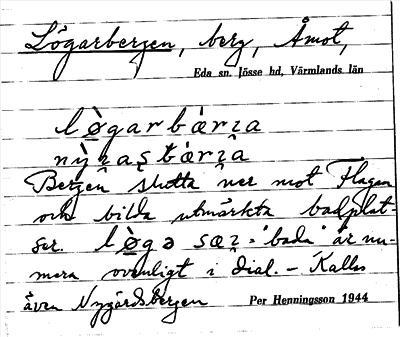 Lögarbergen, berg, Åmot,
Eda sn. Jösse hd, Värmlands län
lø̀garbærɩa
Bergen slutta ner mot Flagan
och bilda utmärkta badplat-
ser. lø̀gə sæɩ = "bada" är nu-
mera ovanligt i dial. – Kallas
även Nygårdsbergen Per Henningsson 1944